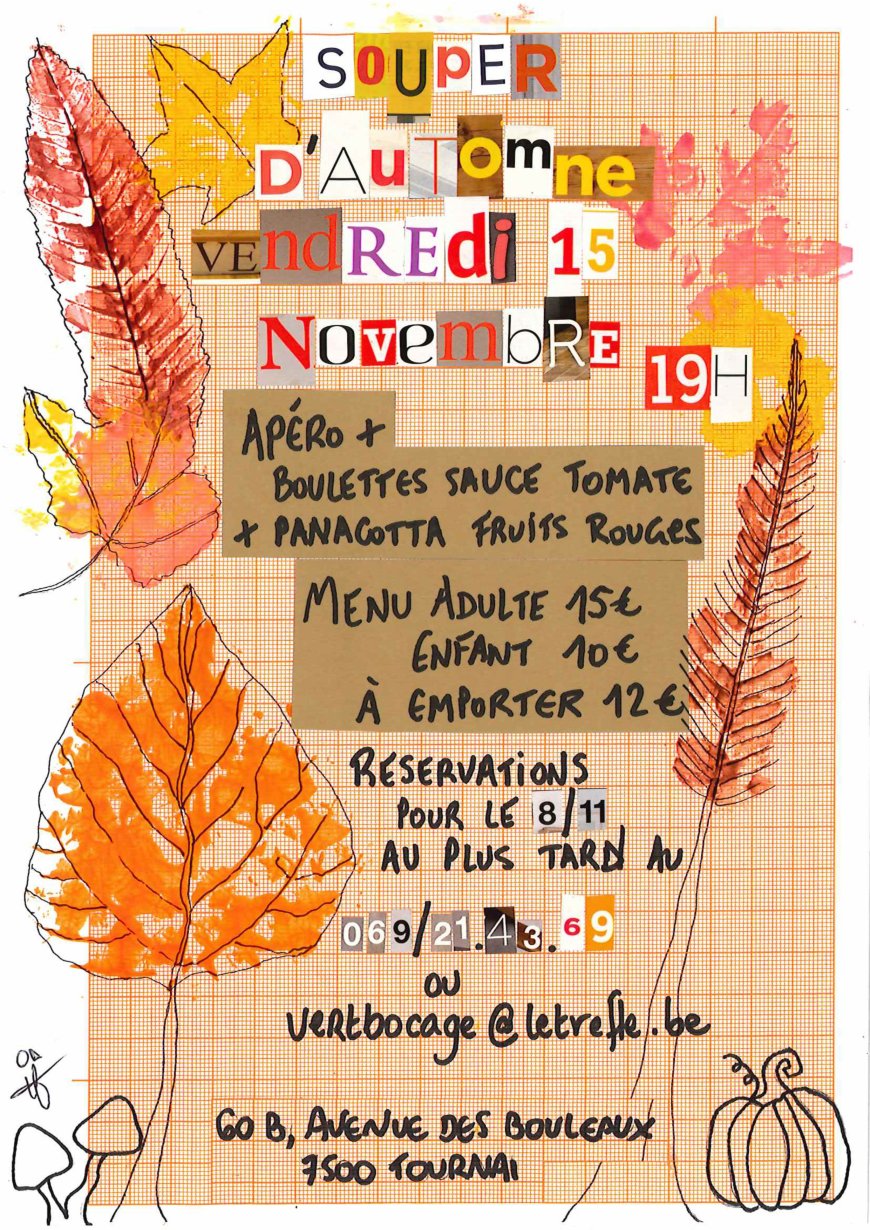 SOUPER
D'AuTOmne
VEndREdi 15
NOVEmbRE 19H
APÉRO +
BOULETTES SAUCE TOMATE
+ PANACOTTA FRUITS ROUGES
MENU ADULTE 15€
ENFANT 10€
À EMPORTER 12€
RESERVATIONS
POUR LE 8/11
AU PLUS TARD AU
069/21.43.69
OU
vertbocage@letrefle.be
60 B, AVENUE DES BOULEAUX
7500 TOURNAI